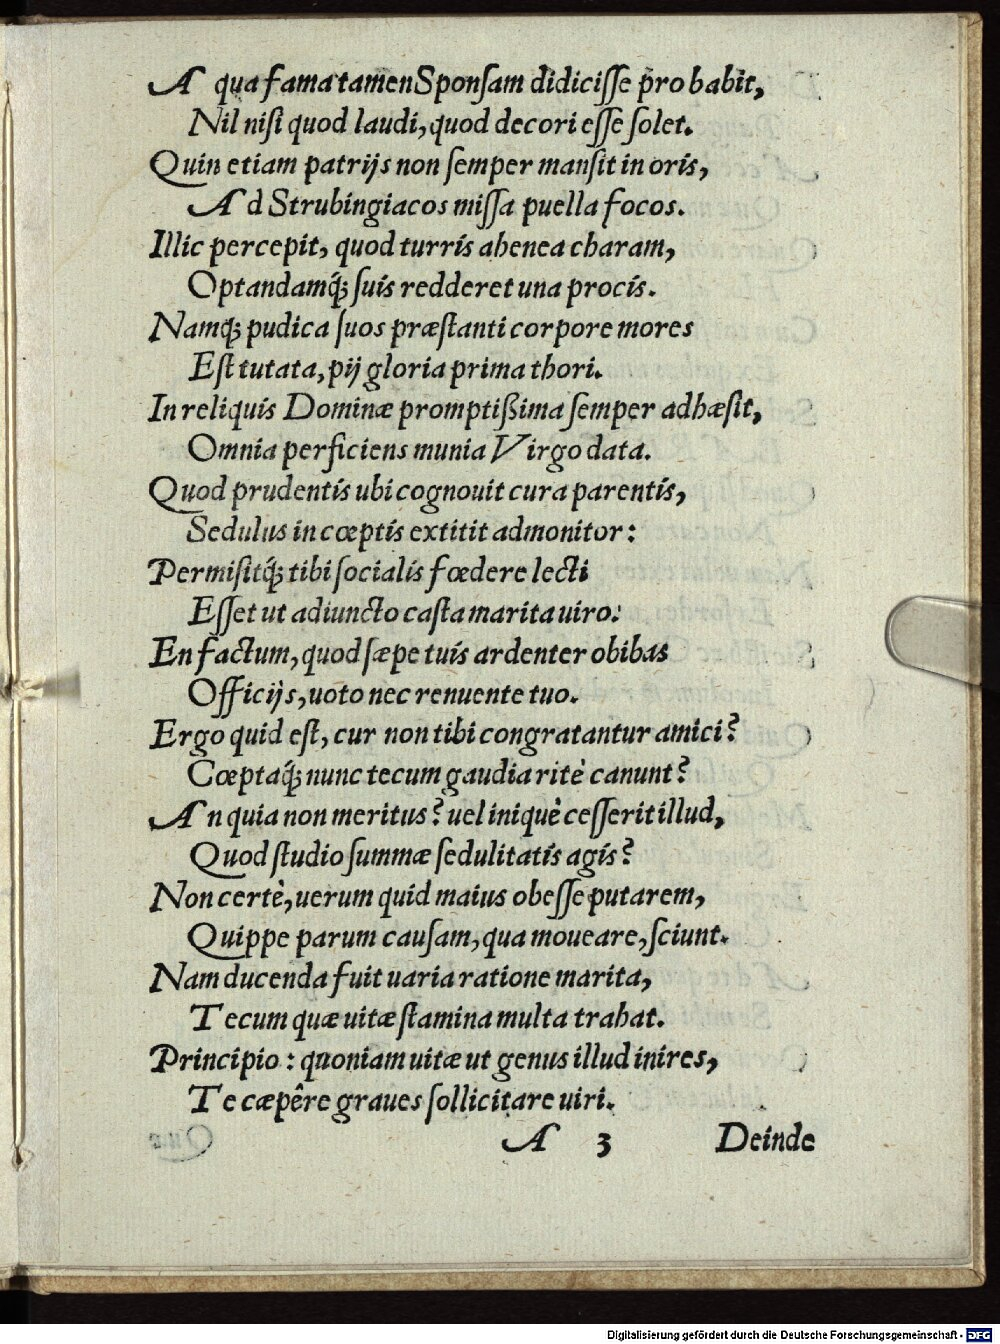 A qua fama tamen Sponſam didiciſſe probabit,
Nil niſi quod laudi, quod decori eſſe ſolet.
Quin etiam patrijs non ſemper manſit in oris,
Ad Strubingiacos miſſa puella focos.
Illic percepit, quod turris ahenea charam,
Optandamq́; ſuis redderet una procis.
Namq́; pudica ſuos præſtanti corpore mores
Eſt tutata, pij gloria prima thori.
In reliquis Dominæ promptiſſima ſemper adhæſit,
Omnia perficiens munia Virgo data.
Quod prudentis ubi cognouit cura parentis,
Sedulus in cœptis extitit admonitor:
Permiſitq́; tibi ſocialis fœdere lecti
Eſſet ut adiuncto caſta marita uiro:
En factum, quod ſæpe tuis ardenter obibas
Officijs, uoto nec renuente tuo.
Ergo quid eſt, cur non tibi congratantur amici?
Cœptaq́; nunc tecum gaudia ritè canunt?
An quia non meritus? uel iniquè ceſſerit illud,
Quod ſtudio ſummæ ſedulitatis agis?
Non certè, uerum quid maius obeſſe putarem,
Quippe parum cauſam, qua moueare, ſciunt.
Nam ducenda fuit uaria ratione marita,
Tecum quæ uitæ ſtamina multa trahat.
Principio: quoniam uitæ ut genus illud inires,
Te cæpêre graues ſollicitare uiri.
A 3 Deinde
Digitalisierung gefördert durch die Deutsche Forschungsgemeinschaft - DFG